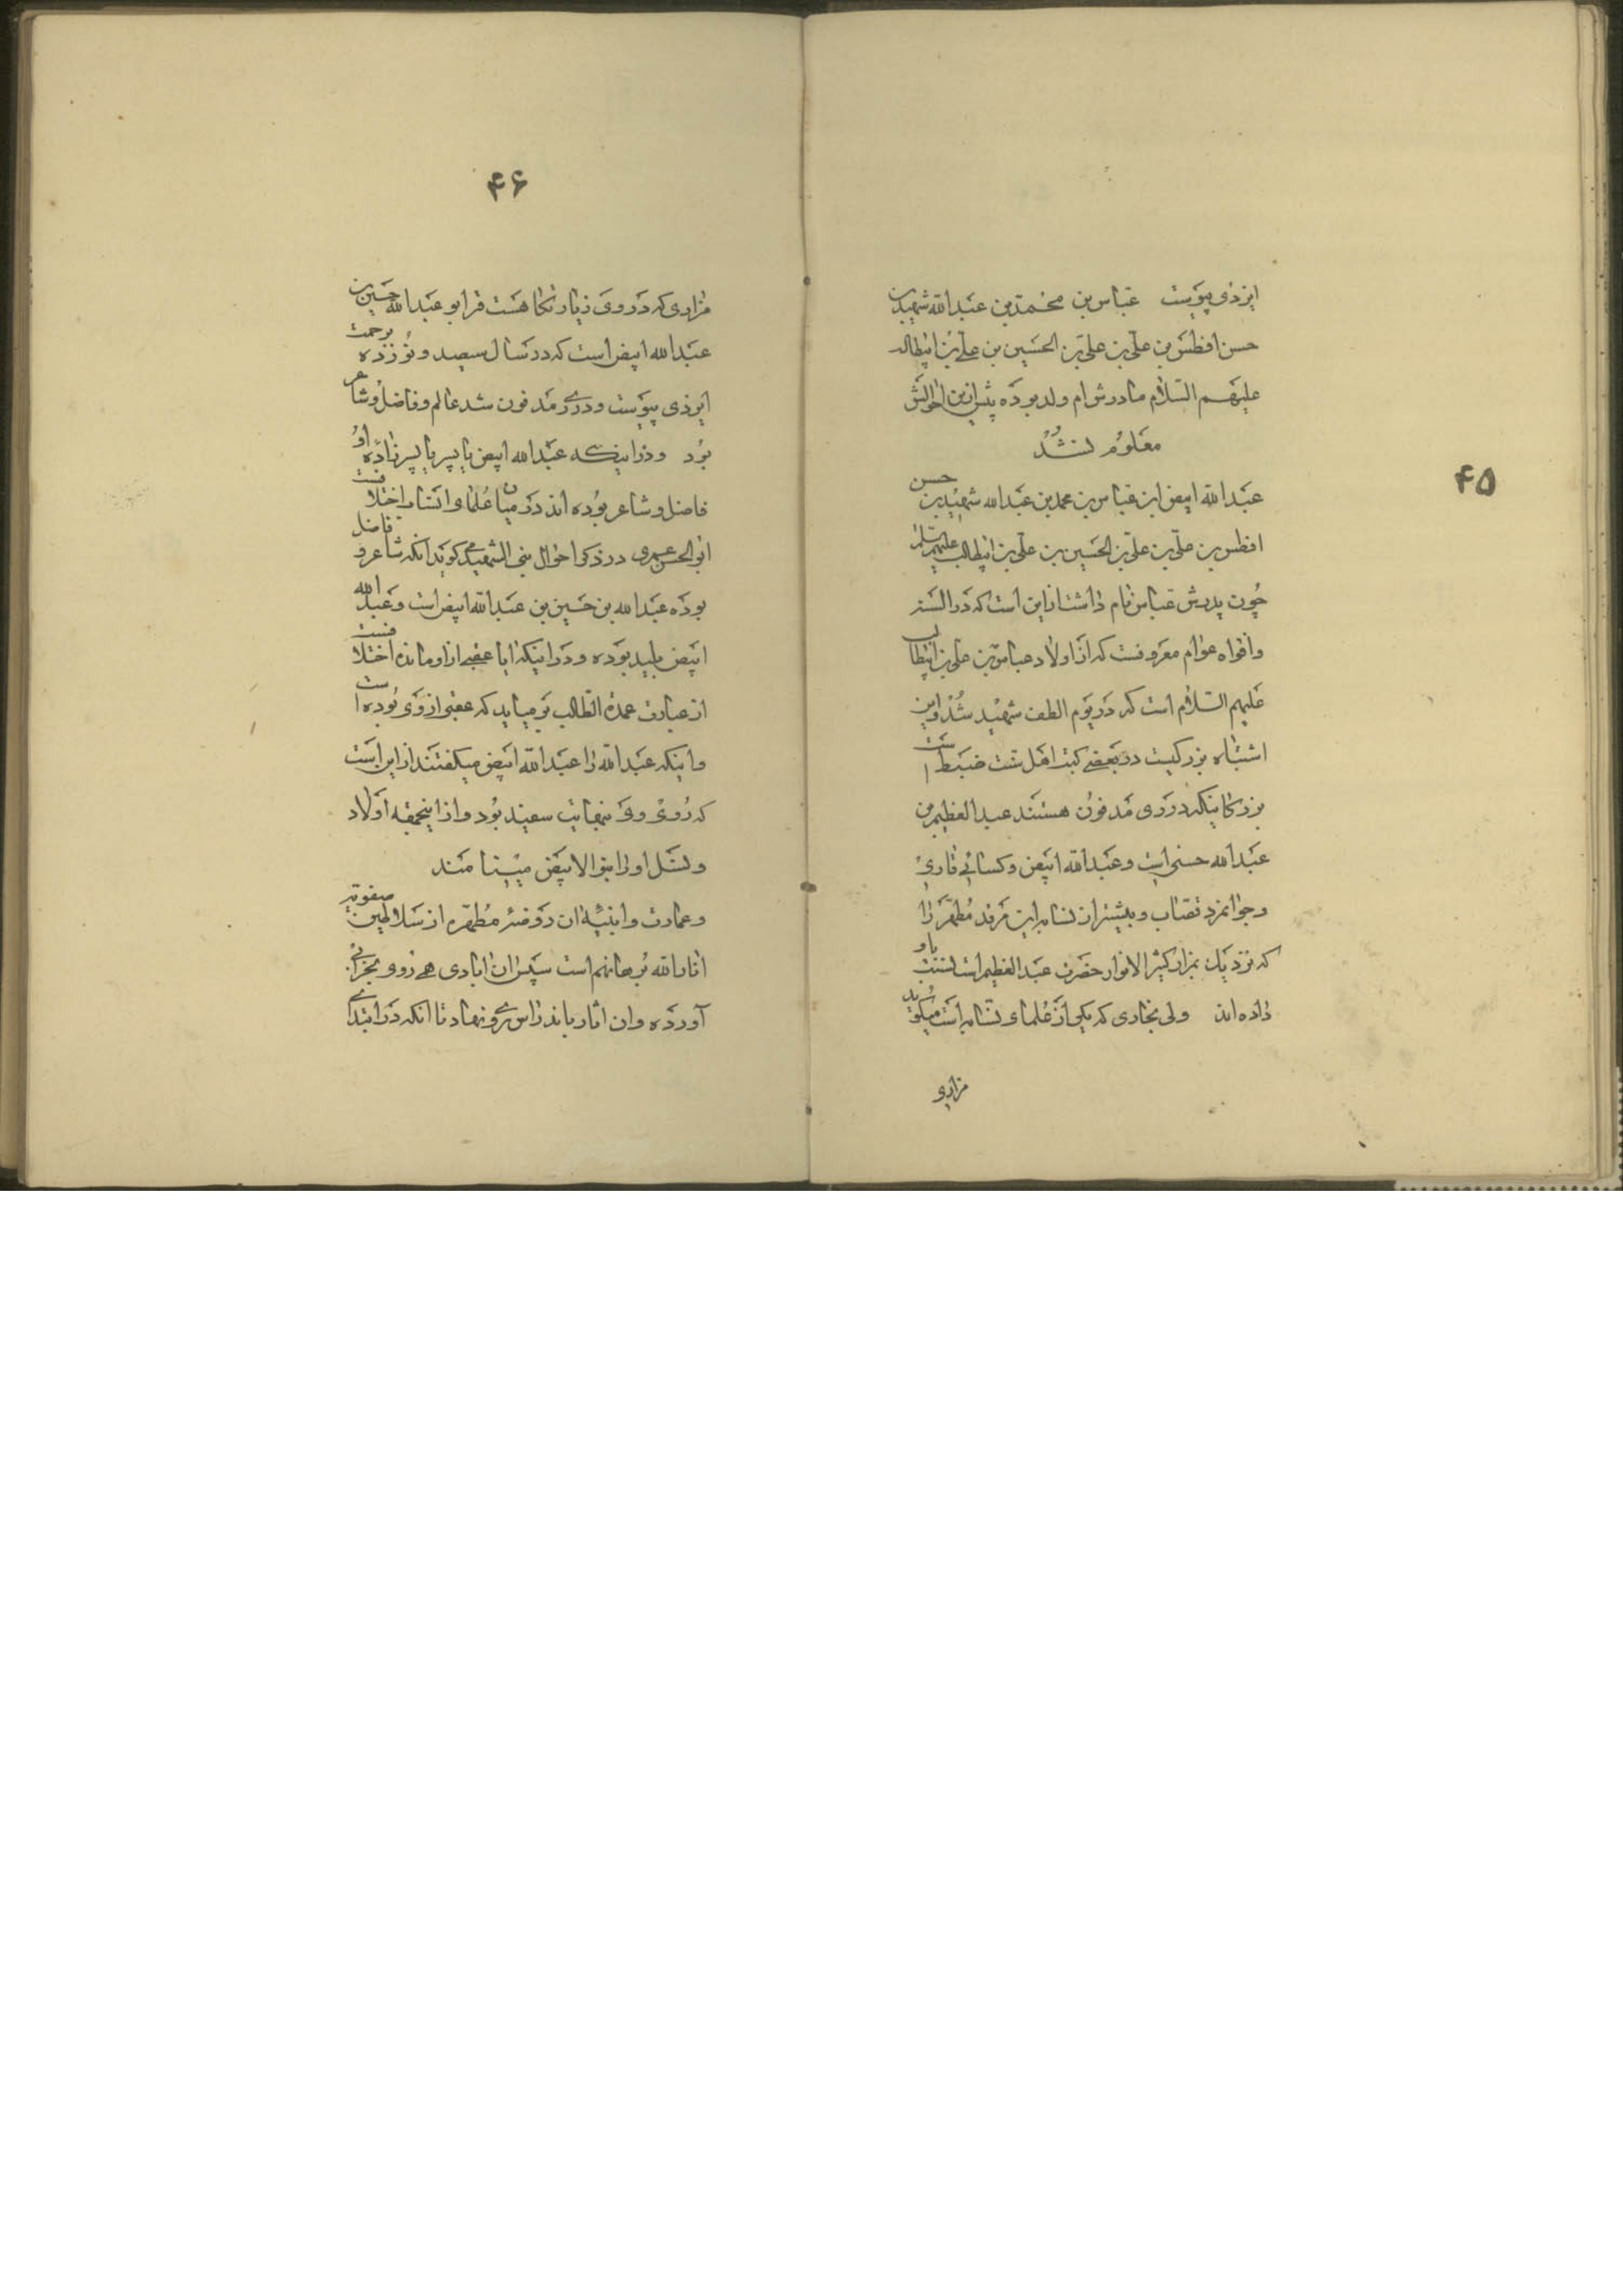 ۴۵
ایزدی پیوست عباس بن محمد بن عبدالله شهید بن
حسن افطس بن علی بن علی بن الحسین بن علی بن ابیطالب
علیهم السلام مادرش ام ولد بوده پیش ازین احوالش
معلوم نشد
عبدالله ابیض ابن عباس بن محمد بن عبدالله شهید بن حسن
افطس بن علی بن علی بن الحسین بن علی بن ابیطالب علیهم سلم
چون پدرش عباس نام داشت ازاین است که در السنه
وافواه عوام معروفست که از اولاد عباس بن علی بن ابیطالب
علیهم السلام است که در یوم الطف شهید شد و این
اشتباه بزرگیست در بعضی کتب اهل سنت ضبط است
بزرگانیکه در ری مدفون هستند عبدالعظیم بن
عبدالله حسنی است و عبدالله ابیض و کسائی قاری
وجوانمرد قصاب و بیشتر از نسابه این مرقد مطهر را
که نزدیک بمزار کثیر الانوار حضرت عبدالعظیم است نسبت باو
داده اند ولی بخاری که یکی از علمای نسابه است میگوید
مزاری
۴۶
مزاری که در ری زیارتگاهست قبر ابو عبدالله حسین بن
عبدالله ابیض است که در سال سیصد و نوزده برحمت
ایزدی پیوست و در ری مدفون شد عالم و فاضل و شاعر
بود و در اینکه عبدالله ابیض یا پسر یا پسرزاده او
فاضل و شاعر بوده اند در میان علمای انساب اختلافست
ابوالحسن عمری در ذکر احوال بنی الشهید میگوید آنکه شاعر و فاضل
بوده عبدالله بن حسین بن عبدالله ابیض است و عبدالله
ابیض بلید بوده و در اینکه ایا عقبی از او مانده اختلافست
از عبارت عمدة الطالب بر میاید که عقبی از وی بوده است
و اینکه عبدالله را عبدالله ابیض میگفتند از این است
که روی وی بنهایت سفید بود و از اینجهة اولاد
و نسل او را بنو الابیض مینامند
و عمارت و ابنیه ان روضه مطهره از سلاطین صفویه
انار الله برهانهم است سپس ان ابادی هی روی بخرابی
آورده و ان اثار باندراس رو نهاد تا انکه در ابتدای